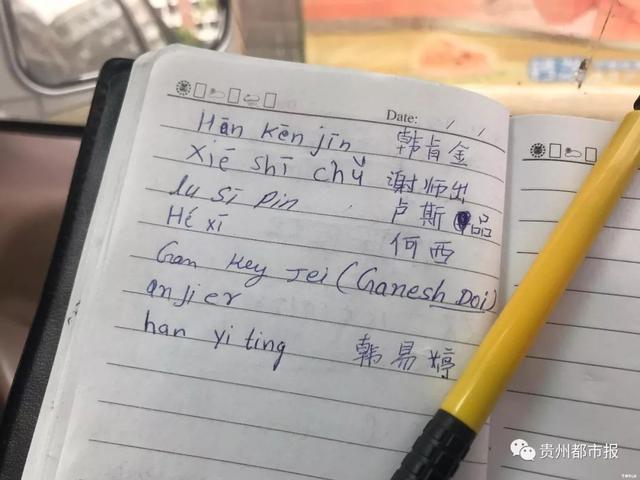 Date: / /
Hān kēn jīn 韩肯金
Xiè shī chǔ 谢师出
lu sī pin 卢斯品
Hé xī 何西
Gan Hey Jei (Ganesh Dai)
anjier
han yi ting 韩易婷
贵州都市报